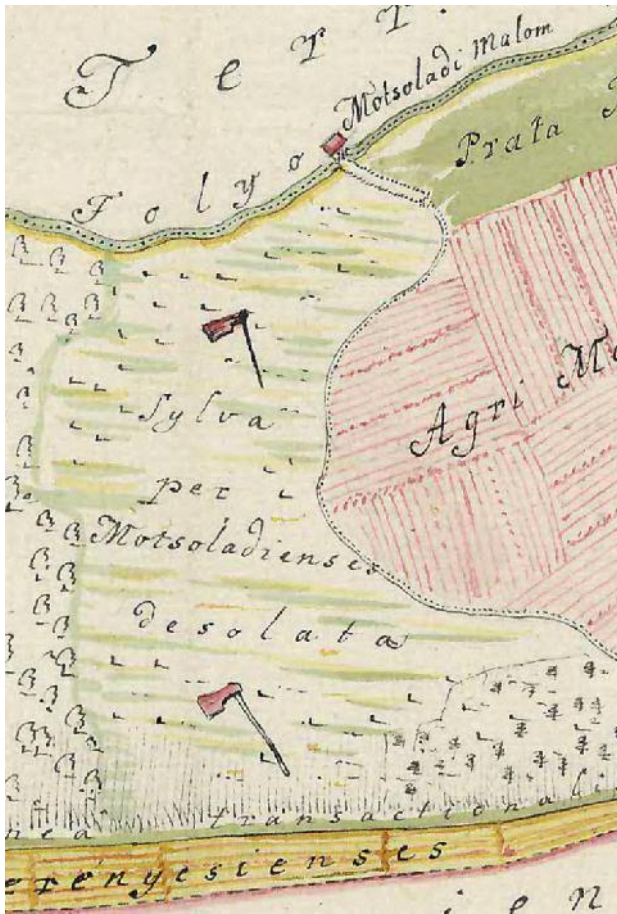 Ter
Motsoladi Malom
Folyo
Prata
Agri Mo
Sylva
per
Motsoladienses
desolata
nea transactionali
erényesienses
ien